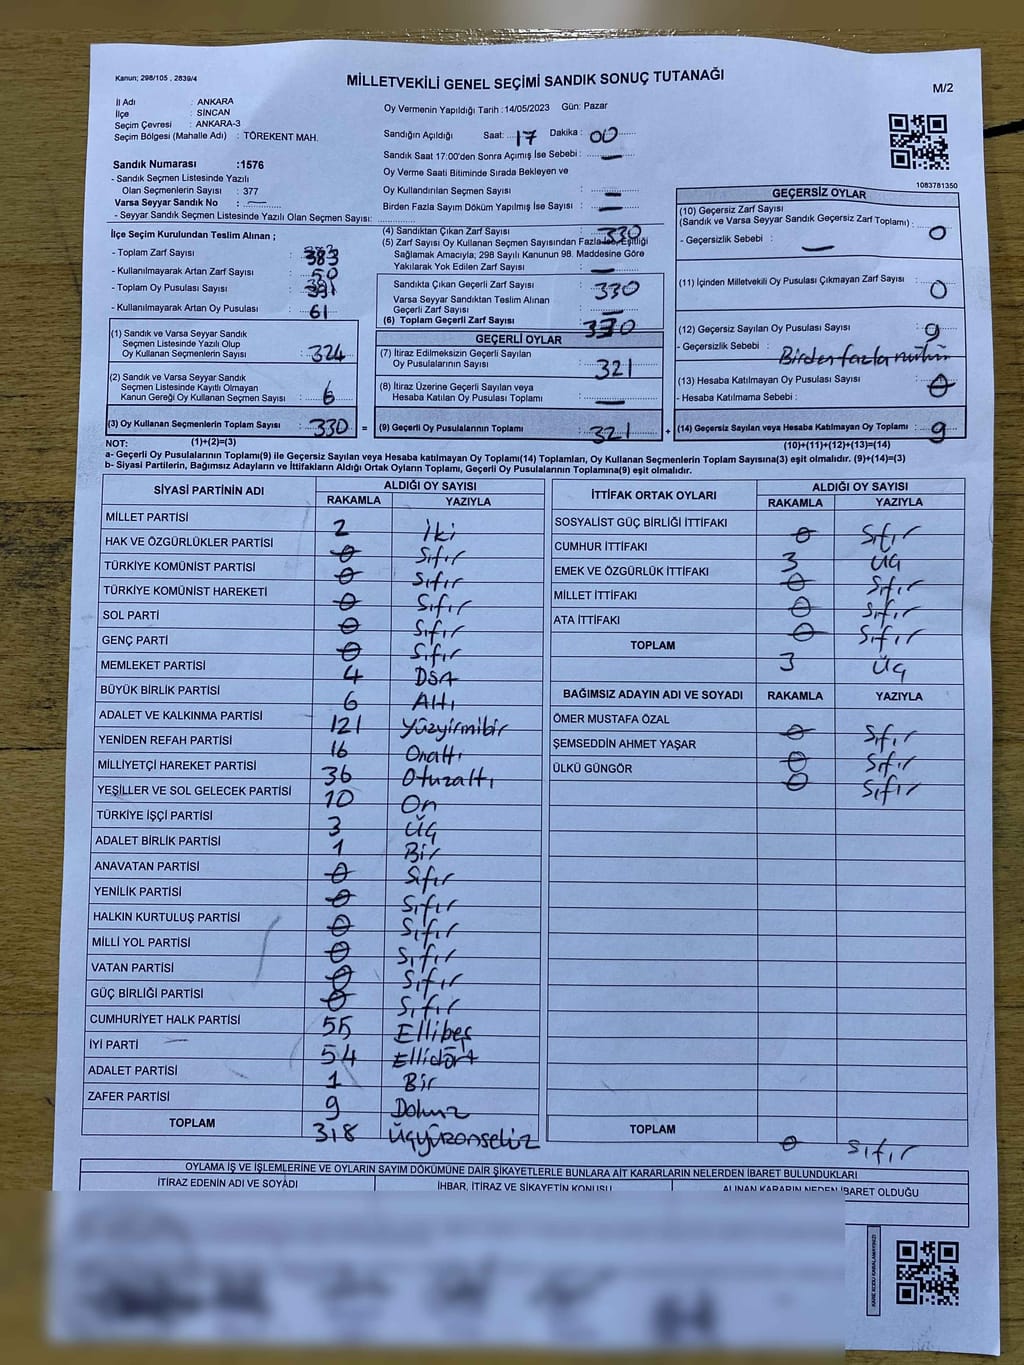 Kanun; 298/105 , 2839/4
MİLLETVEKİLİ GENEL SEÇİMİ SANDIK SONUÇ TUTANAĞI
M/2
İl Adı : ANKARA
İlçe : SİNCAN
Seçim Çevresi : ANKARA-3
Seçim Bölgesi (Mahalle Adı) : TÖREKENT MAH.
Oy Vermenin Yapıldığı Tarih :14/05/2023 Gün: Pazar
Sandığın Açıldığı Saat: 17 Dakika : 00
Sandık Saat 17:00'den Sonra Açımış İse Sebebi : —
Oy Verme Saati Bitiminde Sırada Bekleyen ve
Oy Kullandırılan Seçmen Sayısı : —
Birden Fazla Sayım Döküm Yapılmış İse Sayısı : —
1083781350
Sandık Numarası :1576
- Sandık Seçmen Listesinde Yazılı
Olan Seçmenlerin Sayısı : 377
Varsa Seyyar Sandık No : —
- Seyyar Sandık Seçmen Listesinde Yazılı Olan Seçmen Sayısı:
İlçe Seçim Kurulundan Teslim Alınan ;
- Toplam Zarf Sayısı : 383
- Kullanılmayarak Artan Zarf Sayısı : 50
- Toplam Oy Pusulası Sayısı : 391
- Kullanılmayarak Artan Oy Pusulası : 61
(1) Sandık ve Varsa Seyyar Sandık
Seçmen Listesinde Yazılı Olup
Oy Kullanan Seçmenlerin Sayısı : 324
(2) Sandık ve Varsa Seyyar Sandık
Seçmen Listesinde Kayıtlı Olmayan
Kanun Gereği Oy Kullanan Seçmen Sayısı : 6
(3) Oy Kullanan Seçmenlerin Toplam Sayısı : 330 =
(4) Sandıktan Çıkan Zarf Sayısı : 330
(5) Zarf Sayısı Oy Kullanan Seçmen Sayısından Fazla ise, Eşitliği
Sağlamak Amacıyla; 298 Sayılı Kanunun 98. Maddesine Göre
Yakılarak Yok Edilen Zarf Sayısı : —
Sandıkta Çıkan Geçerli Zarf Sayısı : 330
Varsa Seyyar Sandıktan Teslim Alınan
Geçerli Zarf Sayısı : —
(6) Toplam Geçerli Zarf Sayısı : 330
GEÇERLİ OYLAR
(7) İtiraz Edilmeksizin Geçerli Sayılan
Oy Pusulalarının Sayısı : 321
(8) İtiraz Üzerine Geçerli Sayılan veya
Hesaba Katılan Oy Pusulası Toplamı : —
(9) Geçerli Oy Pusulalarının Toplamı : 321 +
GEÇERSİZ OYLAR
(10) Geçersiz Zarf Sayısı
(Sandık ve Varsa Seyyar Sandık Geçersiz Zarf Toplamı) : 0
- Geçersizlik Sebebi : —
(11) İçinden Milletvekili Oy Pusulası Çıkmayan Zarf Sayısı : 0
(12) Geçersiz Sayılan Oy Pusulası Sayısı : 9
- Geçersizlik Sebebi : Birden fazla mühür
(13) Hesaba Katılmayan Oy Pusulası Sayısı : 0
- Hesaba Katılmama Sebebi :
(14) Geçersiz Sayılan veya Hesaba Katılmayan Oy Toplamı : 9
NOT: (1)+(2)=(3)
(10)+(11)+(12)+(13)=(14)
a- Geçerli Oy Pusulalarının Toplamı(9) ile Geçersiz Sayılan veya Hesaba Katılmayan Oy Toplamı(14) Toplamları, Oy Kullanan Seçmenlerin Toplam Sayısına(3) eşit olmalıdır. (9)+(14)=(3)
b- Siyasi Partilerin, Bağımsız Adayların ve İttifakların Aldığı Ortak Oyların Toplamı, Geçerli Oy Pusulalarının Toplamına(9) eşit olmalıdır.
SİYASİ PARTİNİN ADI ALDIĞI OY SAYISI
RAKAMLA YAZIYLA
MİLLET PARTİSİ 2 İki
HAK VE ÖZGÜRLÜKLER PARTİSİ 0 Sıfır
TÜRKİYE KOMÜNİST PARTİSİ 0 Sıfır
TÜRKİYE KOMÜNİST HAREKETİ 0 Sıfır
SOL PARTİ 0 Sıfır
GENÇ PARTİ 0 Sıfır
MEMLEKET PARTİSİ 4 Dört
BÜYÜK BİRLİK PARTİSİ 6 Altı
ADALET VE KALKINMA PARTİSİ 121 Yüzyirmibir
YENİDEN REFAH PARTİSİ 16 Onaltı
MİLLİYETÇİ HAREKET PARTİSİ 36 Otuzaltı
YEŞİLLER VE SOL GELECEK PARTİSİ 10 On
TÜRKİYE İŞÇİ PARTİSİ 3 Üç
ADALET BİRLİK PARTİSİ 1 Bir
ANAVATAN PARTİSİ 0 Sıfır
YENİLİK PARTİSİ 0 Sıfır
HALKIN KURTULUŞ PARTİSİ 0 Sıfır
MİLLİ YOL PARTİSİ 0 Sıfır
VATAN PARTİSİ 0 Sıfır
GÜÇ BİRLİĞİ PARTİSİ 0 Sıfır
CUMHURİYET HALK PARTİSİ 55 Ellibeş
İYİ PARTİ 54 Ellidört
ADALET PARTİSİ 1 Bir
ZAFER PARTİSİ 9 Dokuz
TOPLAM 318 Üçyüzonsekiz
İTTİFAK ORTAK OYLARI ALDIĞI OY SAYISI
RAKAMLA YAZIYLA
SOSYALİST GÜÇ BİRLİĞİ İTTİFAKI 0 Sıfır
CUMHUR İTTİFAKI 3 Üç
EMEK VE ÖZGÜRLÜK İTTİFAKI 0 Sıfır
MİLLET İTTİFAKI 0 Sıfır
ATA İTTİFAKI 0 Sıfır
TOPLAM 3 Üç
BAĞIMSIZ ADAYIN ADI VE SOYADI RAKAMLA YAZIYLA
ÖMER MUSTAFA ÖZAL 0 Sıfır
ŞEMSEDDİN AHMET YAŞAR 0 Sıfır
ÜLKÜ GÜNGÖR 0 Sıfır
TOPLAM 0 Sıfır
OYLAMA İŞ VE İŞLEMLERİNE VE OYLARIN SAYIM DÖKÜMÜNE DAİR ŞİKAYETLERLE BUNLARA AİT KARARLARIN NELERDEN İBARET BULUNDUKLARI
İTİRAZ EDENİN ADI VE SOYADI İHBAR, İTİRAZ VE ŞİKAYETİN KONUSU ALINAN KARARIN NEDEN İBARET OLDUĞU
KARE KODU KARALAMAYINIZ!